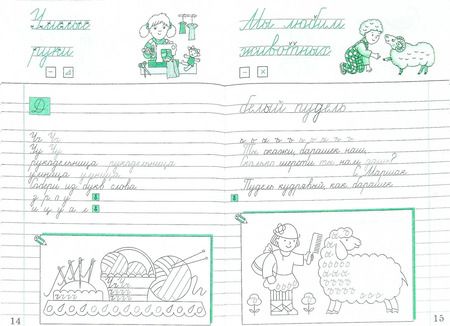 Умелые
руки
Уч Уч
Уу Уу
рукодельница рукодельница
умница умница
Собери из букв слова
д р о у
и ц у а х
14
Мы любим
животных
белый пудель
Ты скажи, барашек наш,
Сколько шерсти ты нам дашь?
С. Маршак
Пудель кудрявый, как барашек.
15